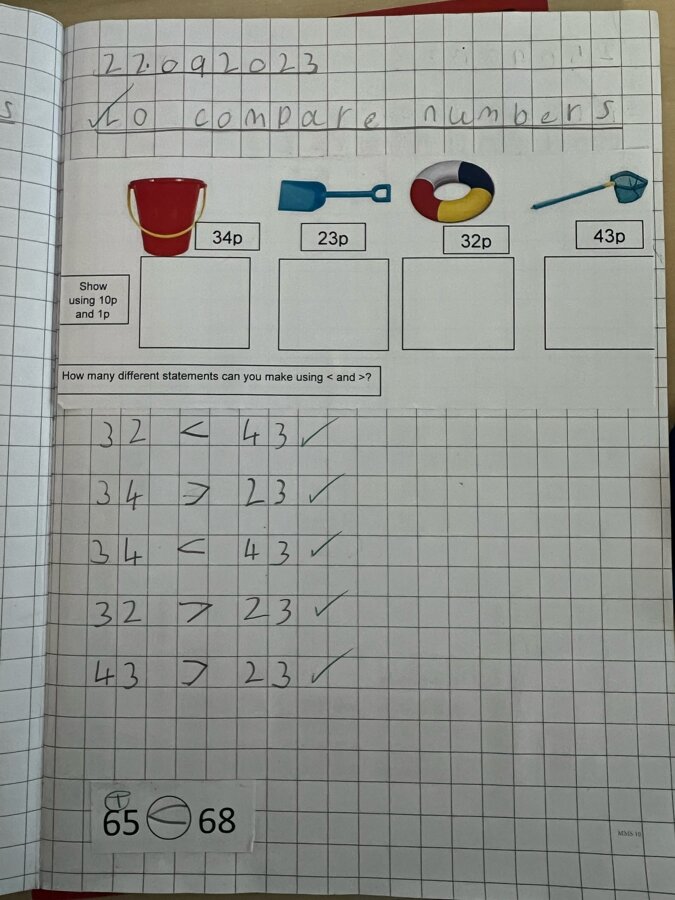 22.092023
LO compare numbers
34p 23p 32p 43p
Show
using 10p
and 1p
How many different statements can you make using < and >?
32 < 43 ✓
34 > 23 ✓
34 < 43 ✓
32 > 23 ✓
43 > 23 ✓
T
65 < 68
MMS 10
s